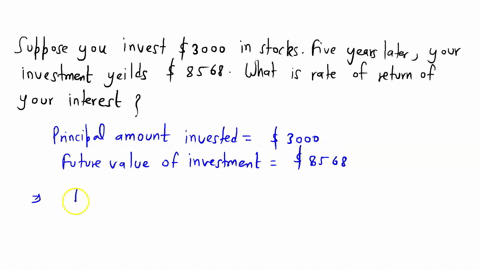 Suppose you invest $3000 in stocks. Five years later, your
investment yeilds $ 8568. What is rate of return of
your interest ?
Principal amount invested = $3000
Future value of investment = $8568
⇒